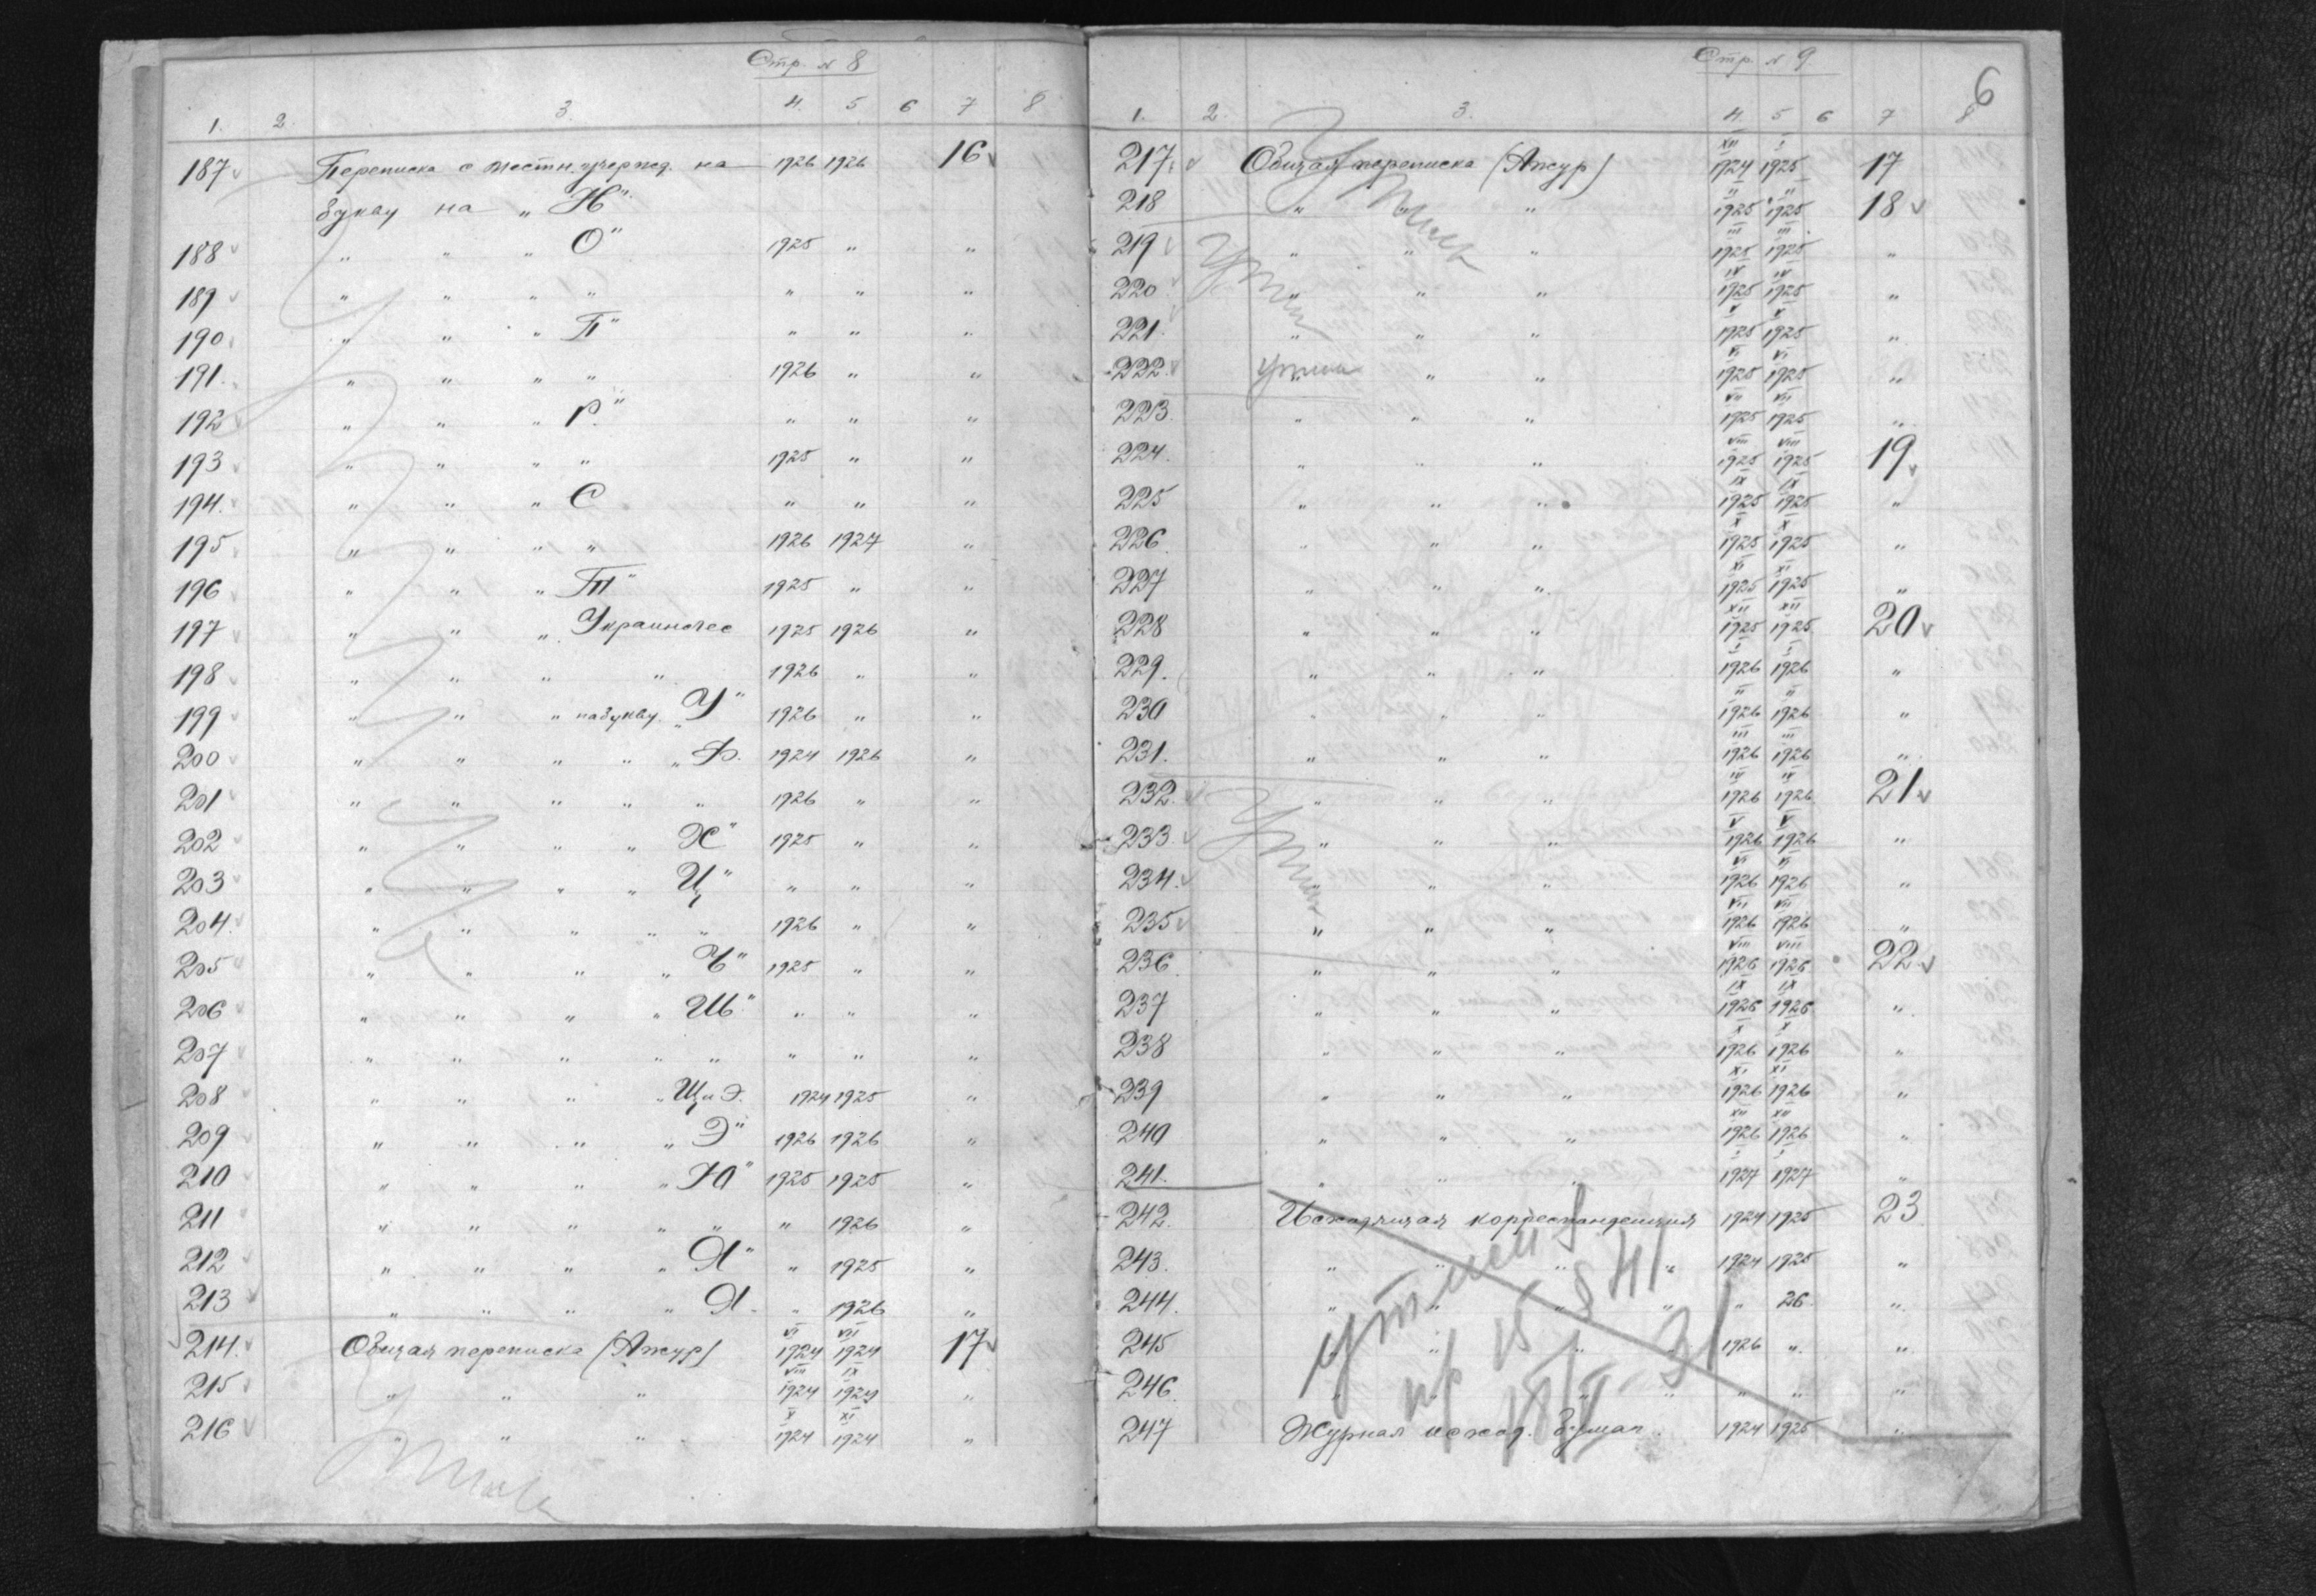 Стр. № 8
1. 2. 3. 4. 5 6 7 8
187 Переписка с местн. учережд. на 1926 1926 16
букву на „Н"
188 „ „ „ О" 1925 „ „
189 „ „ „ „ „ „ „
190 „ „ „ П" „ „ „
191. „ „ „ „ 1926 „ „
192 „ „ „ Р." „ „ „
193 „ „ „ „ 1925 „ „
194. „ „ „ С „ „ „
195 „ „ „ „ 1926 1927 „
196 „ „ „ Т" 1925 „ „
197 „ „ „ 1925 1926 „
198 „ „ „ „ 1926 „ „
199 „ „ „ на букву „У" 1926 „ „
200 „ „ „ „ „Ф. 1924 1926 „
201 „ „ „ „ „ 1926 „ „
202 „ „ „ „ Х" 1925 „ „
203 „ „ „ „ Ц" „ „ „
204. „ „ „ „ „ 1926 „ „
205 „ „ „ „ Ч" 1925 „ „
206 „ „ „ „ Ш" „ „ „
207 „ „ „ „ „ „ „ „
208 „ „ „ „ Щ и Э. 1924 1925 „
209 „ „ „ „ Э" 1926 1926 „
210 „ „ „ „ Ю" 1925 1925 „
211 „ „ „ „ „ „ 1926 „
212 „ „ „ „ Я" „ 1925 „
213 „ „ „ „ Я. „ 1926 „
214. Общая переписка (Ажур) VI 1924 VII 1924 17
215 „ „ „ VIII 1924 IX 1924 „
216 „ „ „ X 1924 XI 1924 „
Стр. № 9
6
1. 2. 3. 4. 5 6 7 8
217. Общая переписка (Ажур) XII 1924 I 1925 17
218 „ „ „ II 1925 II 1925 18
219 „ „ „ III 1925 III 1925 „
220 „ „ „ IV 1925 IV 1925 „
221. „ „ „ V 1925 V 1925 „
222. „ „ „ VI 1925 VI 1925 „
223. „ „ „ VII 1925 VII 1925 „
224. „ „ „ VIII 1925 VIII 1925 19
225 „ „ „ IX 1925 IX 1925 „
226 „ „ „ X 1925 X 1925 „
227 „ „ „ XI 1925 XI 1925 „
228 „ „ „ XII 1925 XII 1925 20
229. „ „ „ I 1926 I 1926 „
230 „ „ „ II 1926 II 1926 „
231. „ „ „ III 1926 III 1926 „
232. „ „ „ IV 1926 IV 1926 21
233 „ „ „ V 1926 V 1926 „
234. „ „ „ VI 1926 VI 1926 „
235 „ „ „ VII 1926 VII 1926 „
236 „ „ „ VIII 1926 VIII 1926 22
237 „ „ „ IX 1926 IX 1926 „
238 „ „ „ X 1926 X 1926 „
239 „ „ „ XI 1926 XI 1926 „
240 „ „ „ XII 1926 XII 1926 „
241. „ „ „ I 1927 I 1927 „
242. Исходящая корреспонденция 1924 1925 23
243. „ „ „ „ 1924 1925 „
244. „ „ „ „ „ 26 „
245 „ „ „ „ 1926 „ „
246. „ „ „ „ „ „ „
247 Журнал исход. бумаг. 1924 1925 „